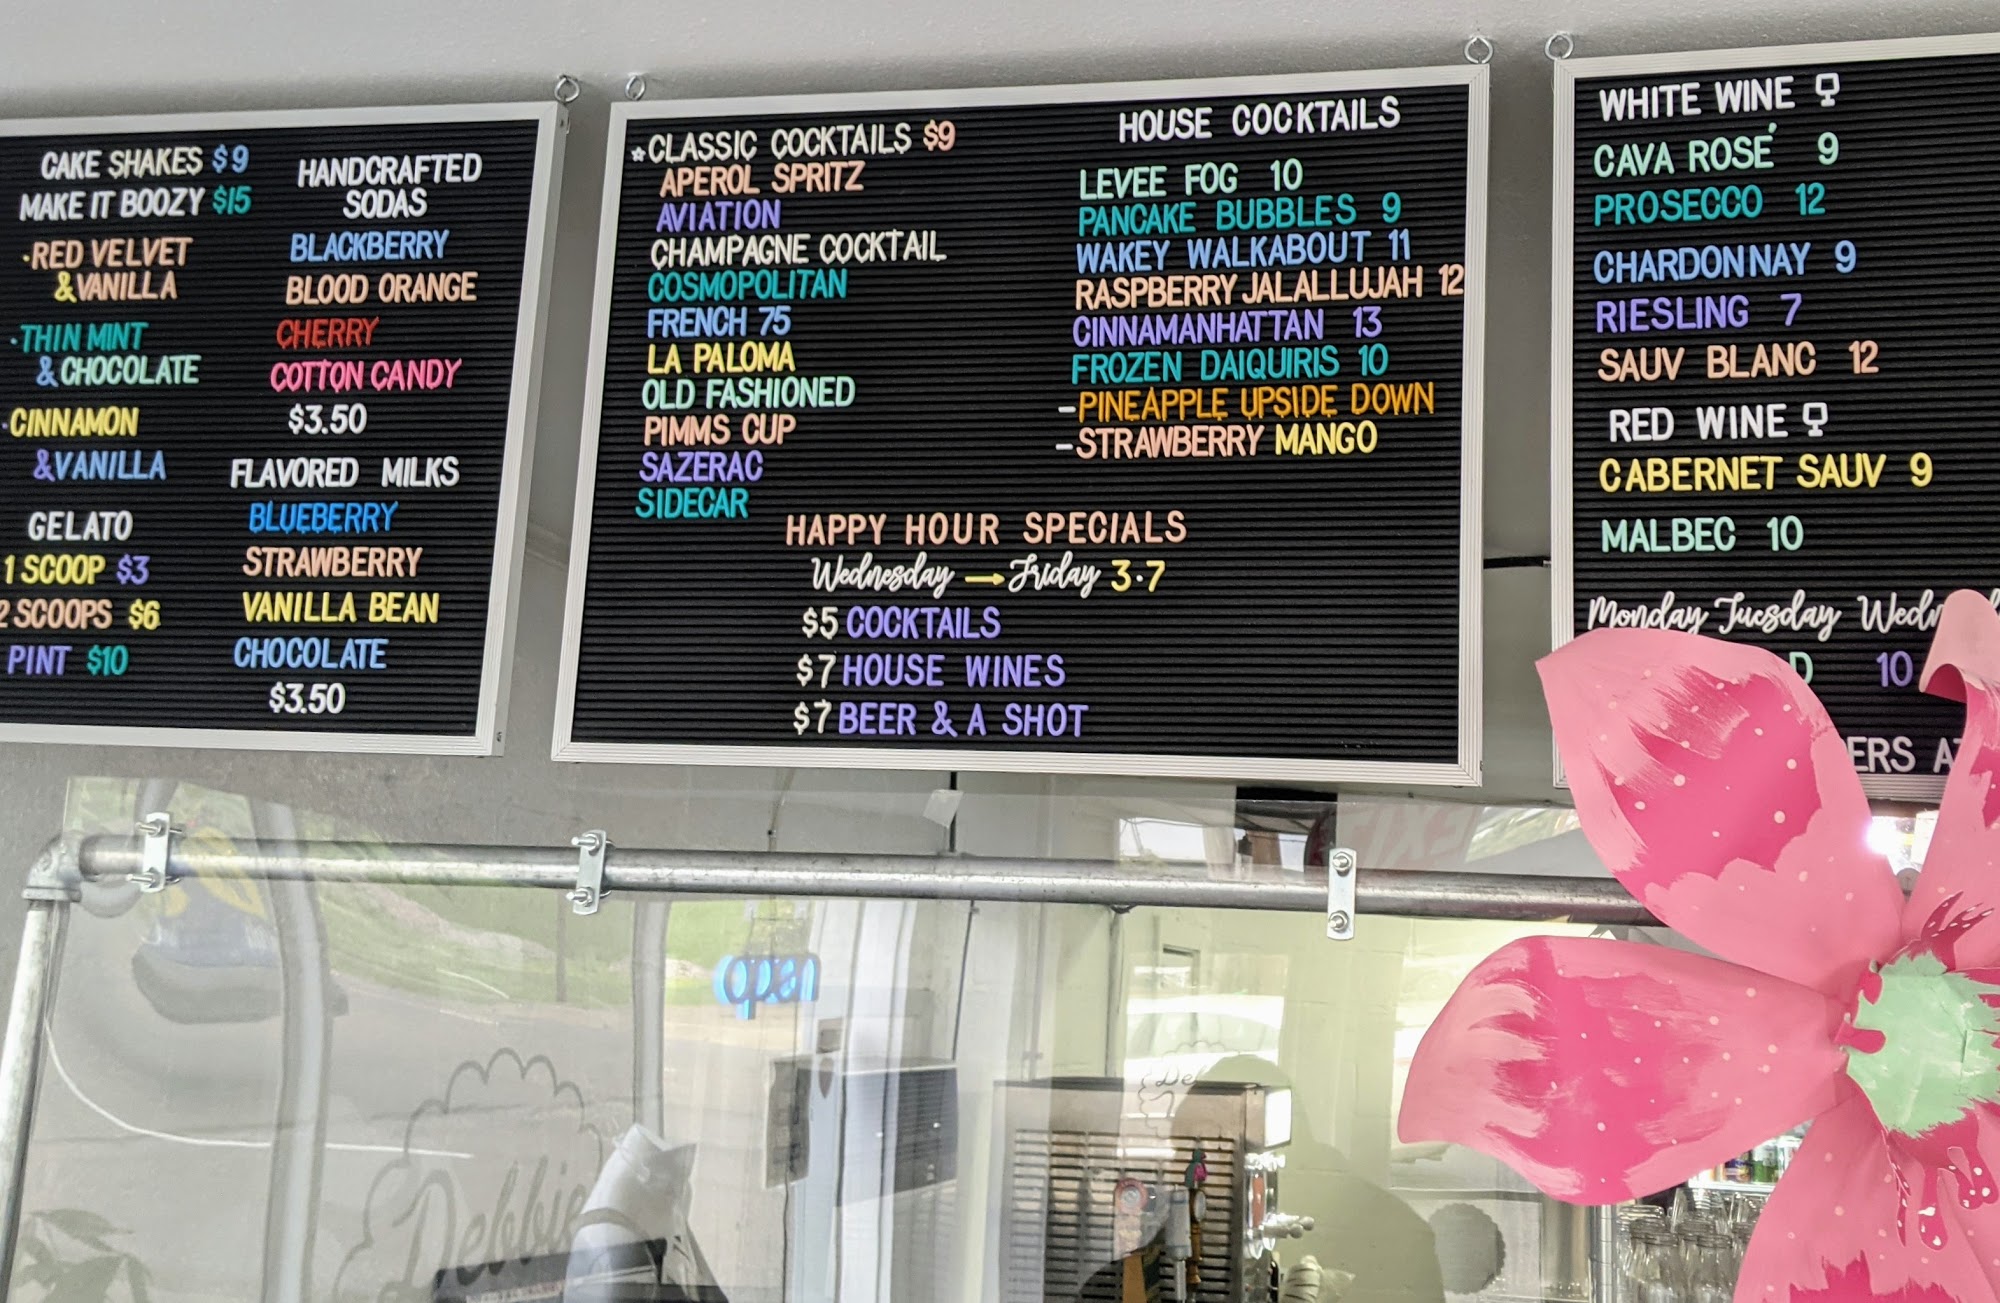 CAKE SHAKES $9
MAKE IT BOOZY $15
·RED VELVET
&VANILLA
·THIN MINT
& CHOCOLATE
·CINNAMON
&VANILLA
GELATO
1 SCOOP $3
2 SCOOPS $6
PINT $10
HANDCRAFTED
SODAS
BLACKBERRY
BLOOD ORANGE
CHERRY
COTTON CANDY
$3.50
FLAVORED MILKS
BLUEBERRY
STRAWBERRY
VANILLA BEAN
CHOCOLATE
$3.50
☆CLASSIC COCKTAILS $9
APEROL SPRITZ
AVIATION
CHAMPAGNE COCKTAIL
COSMOPOLITAN
FRENCH 75
LA PALOMA
OLD FASHIONED
PIMMS CUP
SAZERAC
SIDECAR
HOUSE COCKTAILS
LEVEE FOG 10
PANCAKE BUBBLES 9
WAKEY WALKABOUT 11
RASPBERRY JALALLUJAH 12
CINNAMANHATTAN 13
FROZEN DAIQUIRIS 10
-PINEAPPLE UPSIDE DOWN
-STRAWBERRY MANGO
HAPPY HOUR SPECIALS
Wednesday → Friday 3·7
$5 COCKTAILS
$7 HOUSE WINES
$7 BEER & A SHOT
WHITE WINE
CAVA ROSÉ 9
PROSECCO 12
CHARDONNAY 9
RIESLING 7
SAUV BLANC 12
RED WINE
CABERNET SAUV 9
MALBEC 10
Monday Tuesday
10
open
Debbie